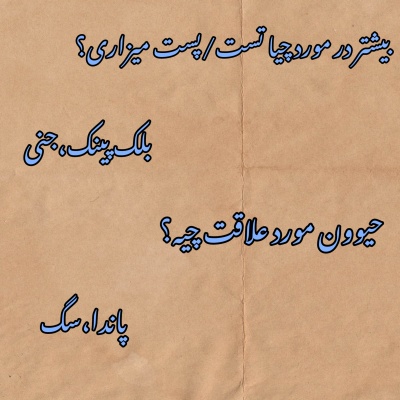 بیشتر در مورد چیا تست/پست میزاری؟
بلک پینک، جنی
حیوون مورد علاقت چیه؟
پاندا، سگ